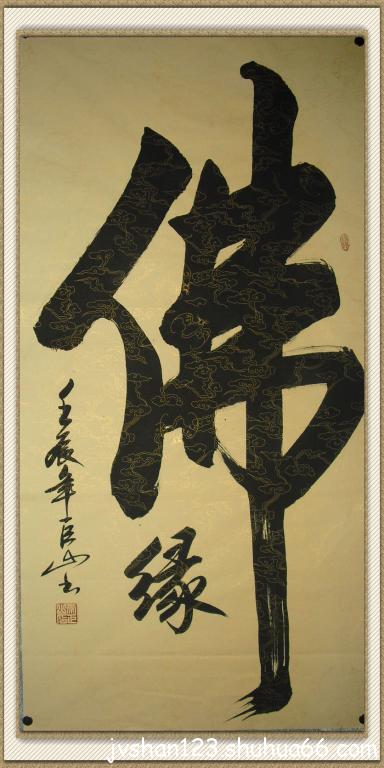 佛
缘
壬辰年巨山书
jvshan123.shuhua66.com